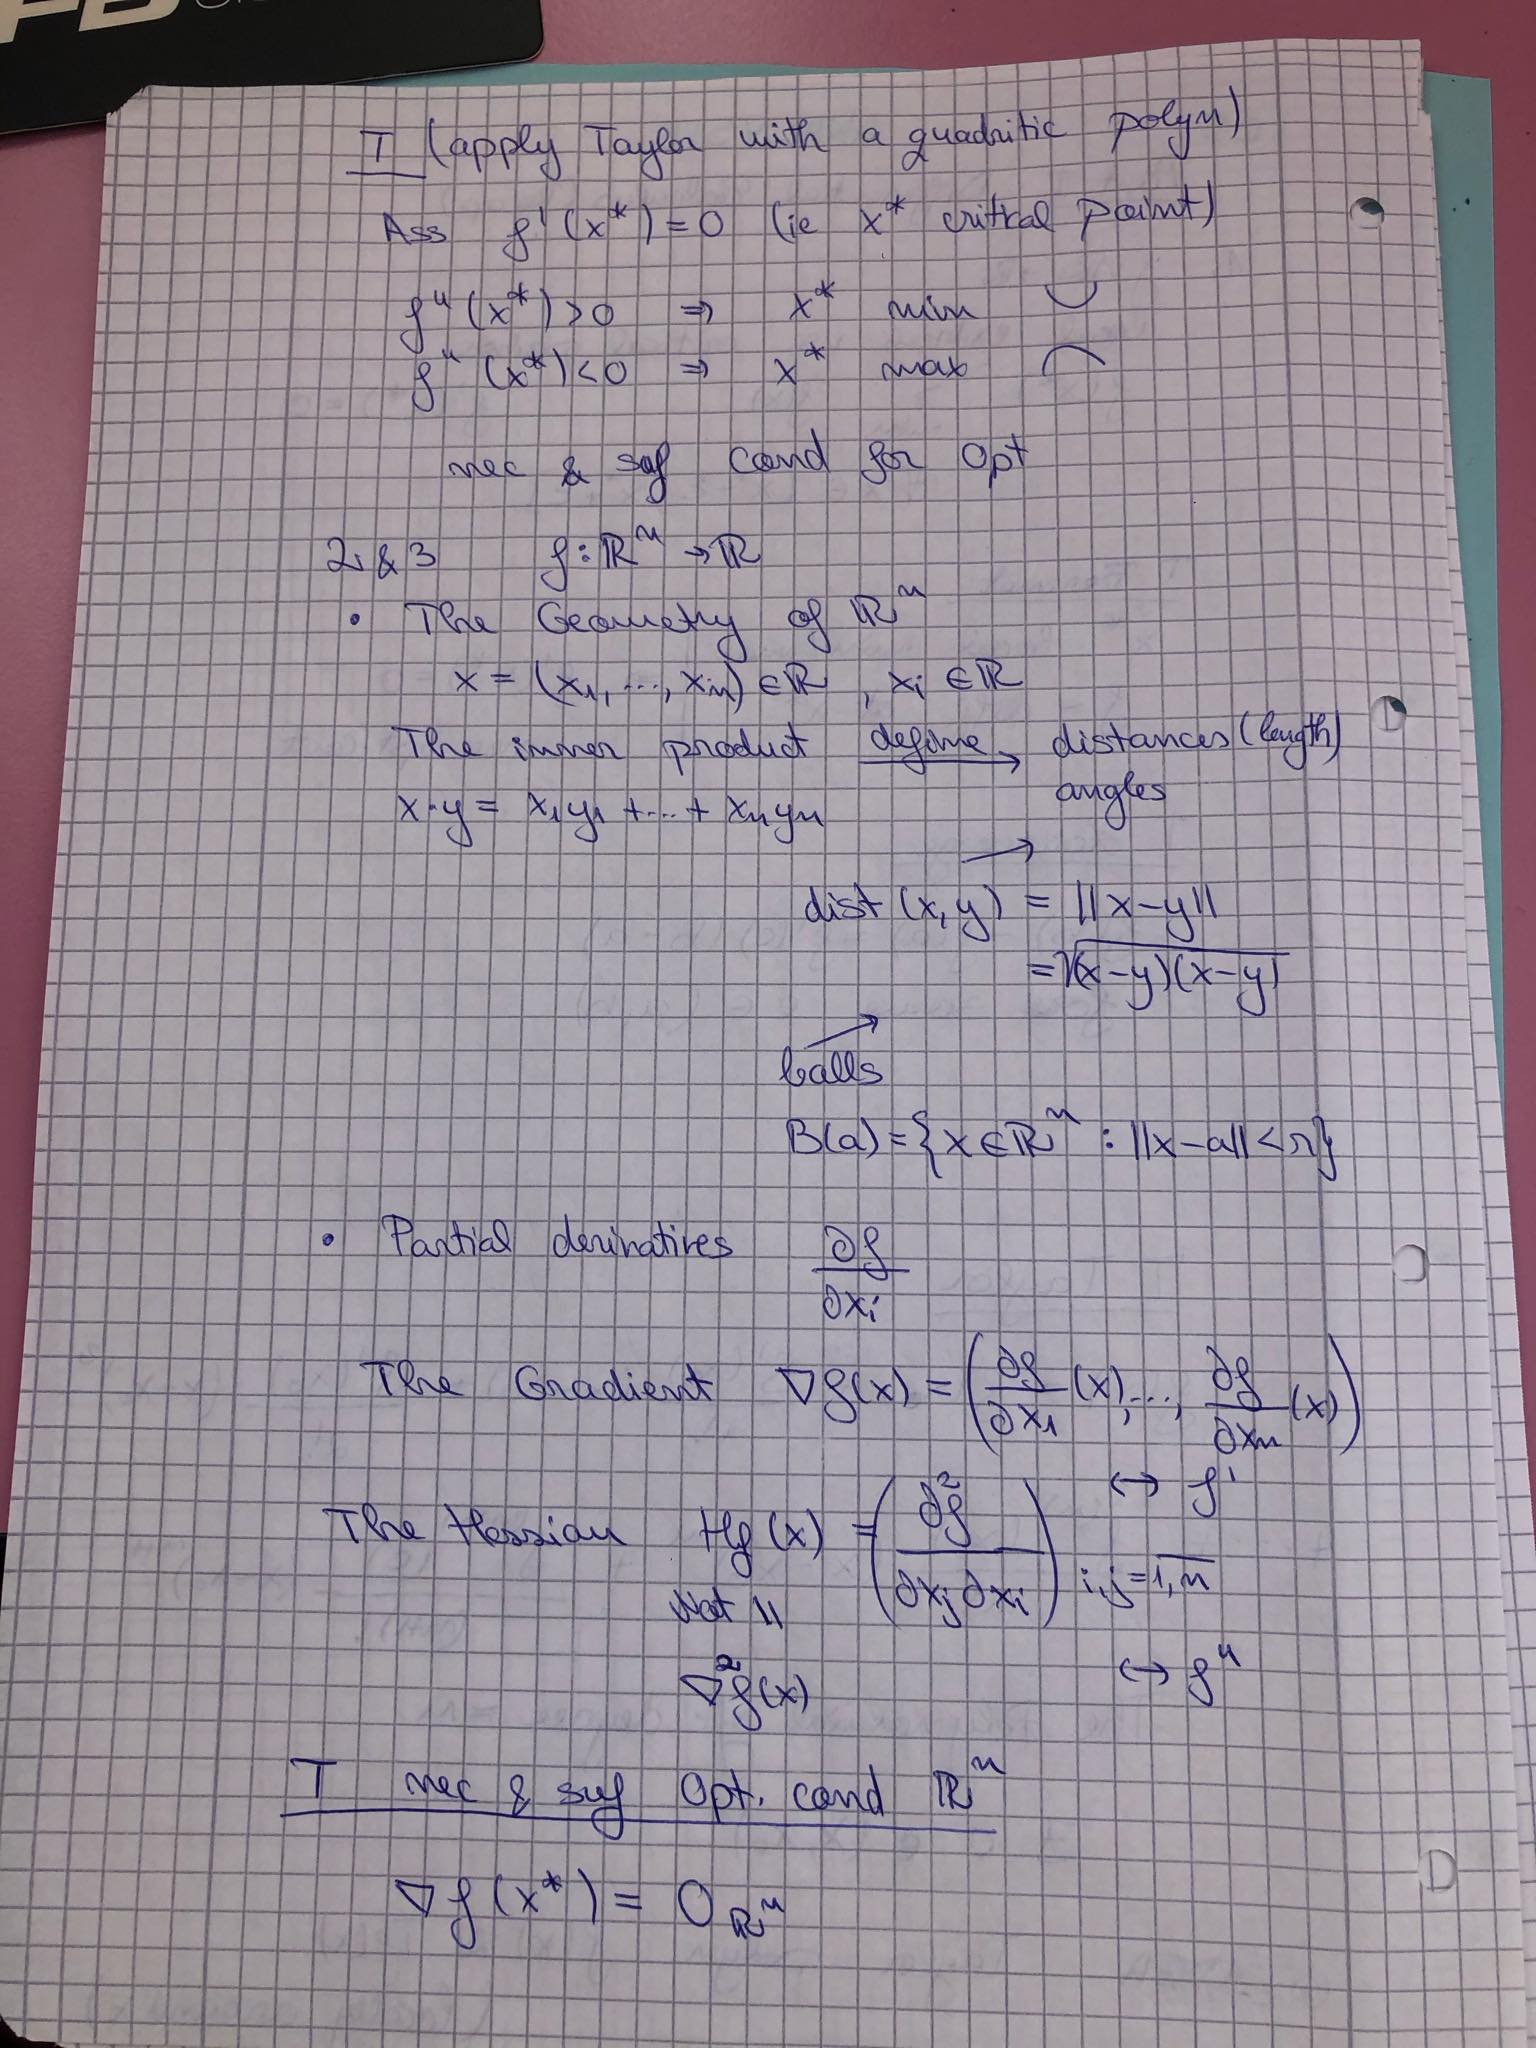 T (apply Taylor with a quadratic polyn)
Ass f'(x*) = 0 (ie x* critical point)
f''(x*) > 0 ⇒ x* min
f''(x*) < 0 ⇒ x* max
nec & suf cond for Opt
2 & 3 f: ℝⁿ → ℝ
• The Geometry of ℝⁿ
x = (x₁, ..., xₙ) ∈ ℝ, xᵢ ∈ ℝ
The inner product define → distances (length)
angles
x·y = x₁y₁ + ... + xₙyₙ
→
dist (x, y) = ||x-y||
= √(x-y)(x-y)
→
balls
B(a) = {x ∈ ℝⁿ : ||x-a|| < r}
• Partial derivatives ∂f/∂xᵢ
The Gradient ∇f(x) = (∂f/∂x₁ (x), ..., ∂f/∂xₙ (x))
↔ f'
The Hessian Hf(x) = (∂²f/∂xⱼ∂xᵢ) i,j=1,n̅
Not ||
∇²f(x) ↔ f''
T nec & suf Opt. cond ℝⁿ
∇f(x*) = 0_ℝⁿ